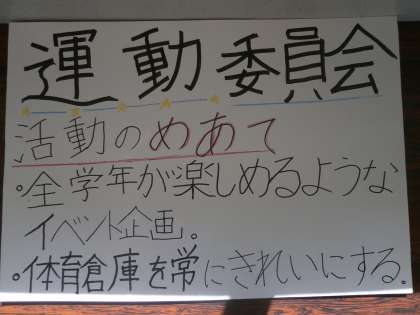 運動委員会
活動のめあて
・全学年が楽しめるような
イベント企画。
・体育倉庫を常にきれいにする。